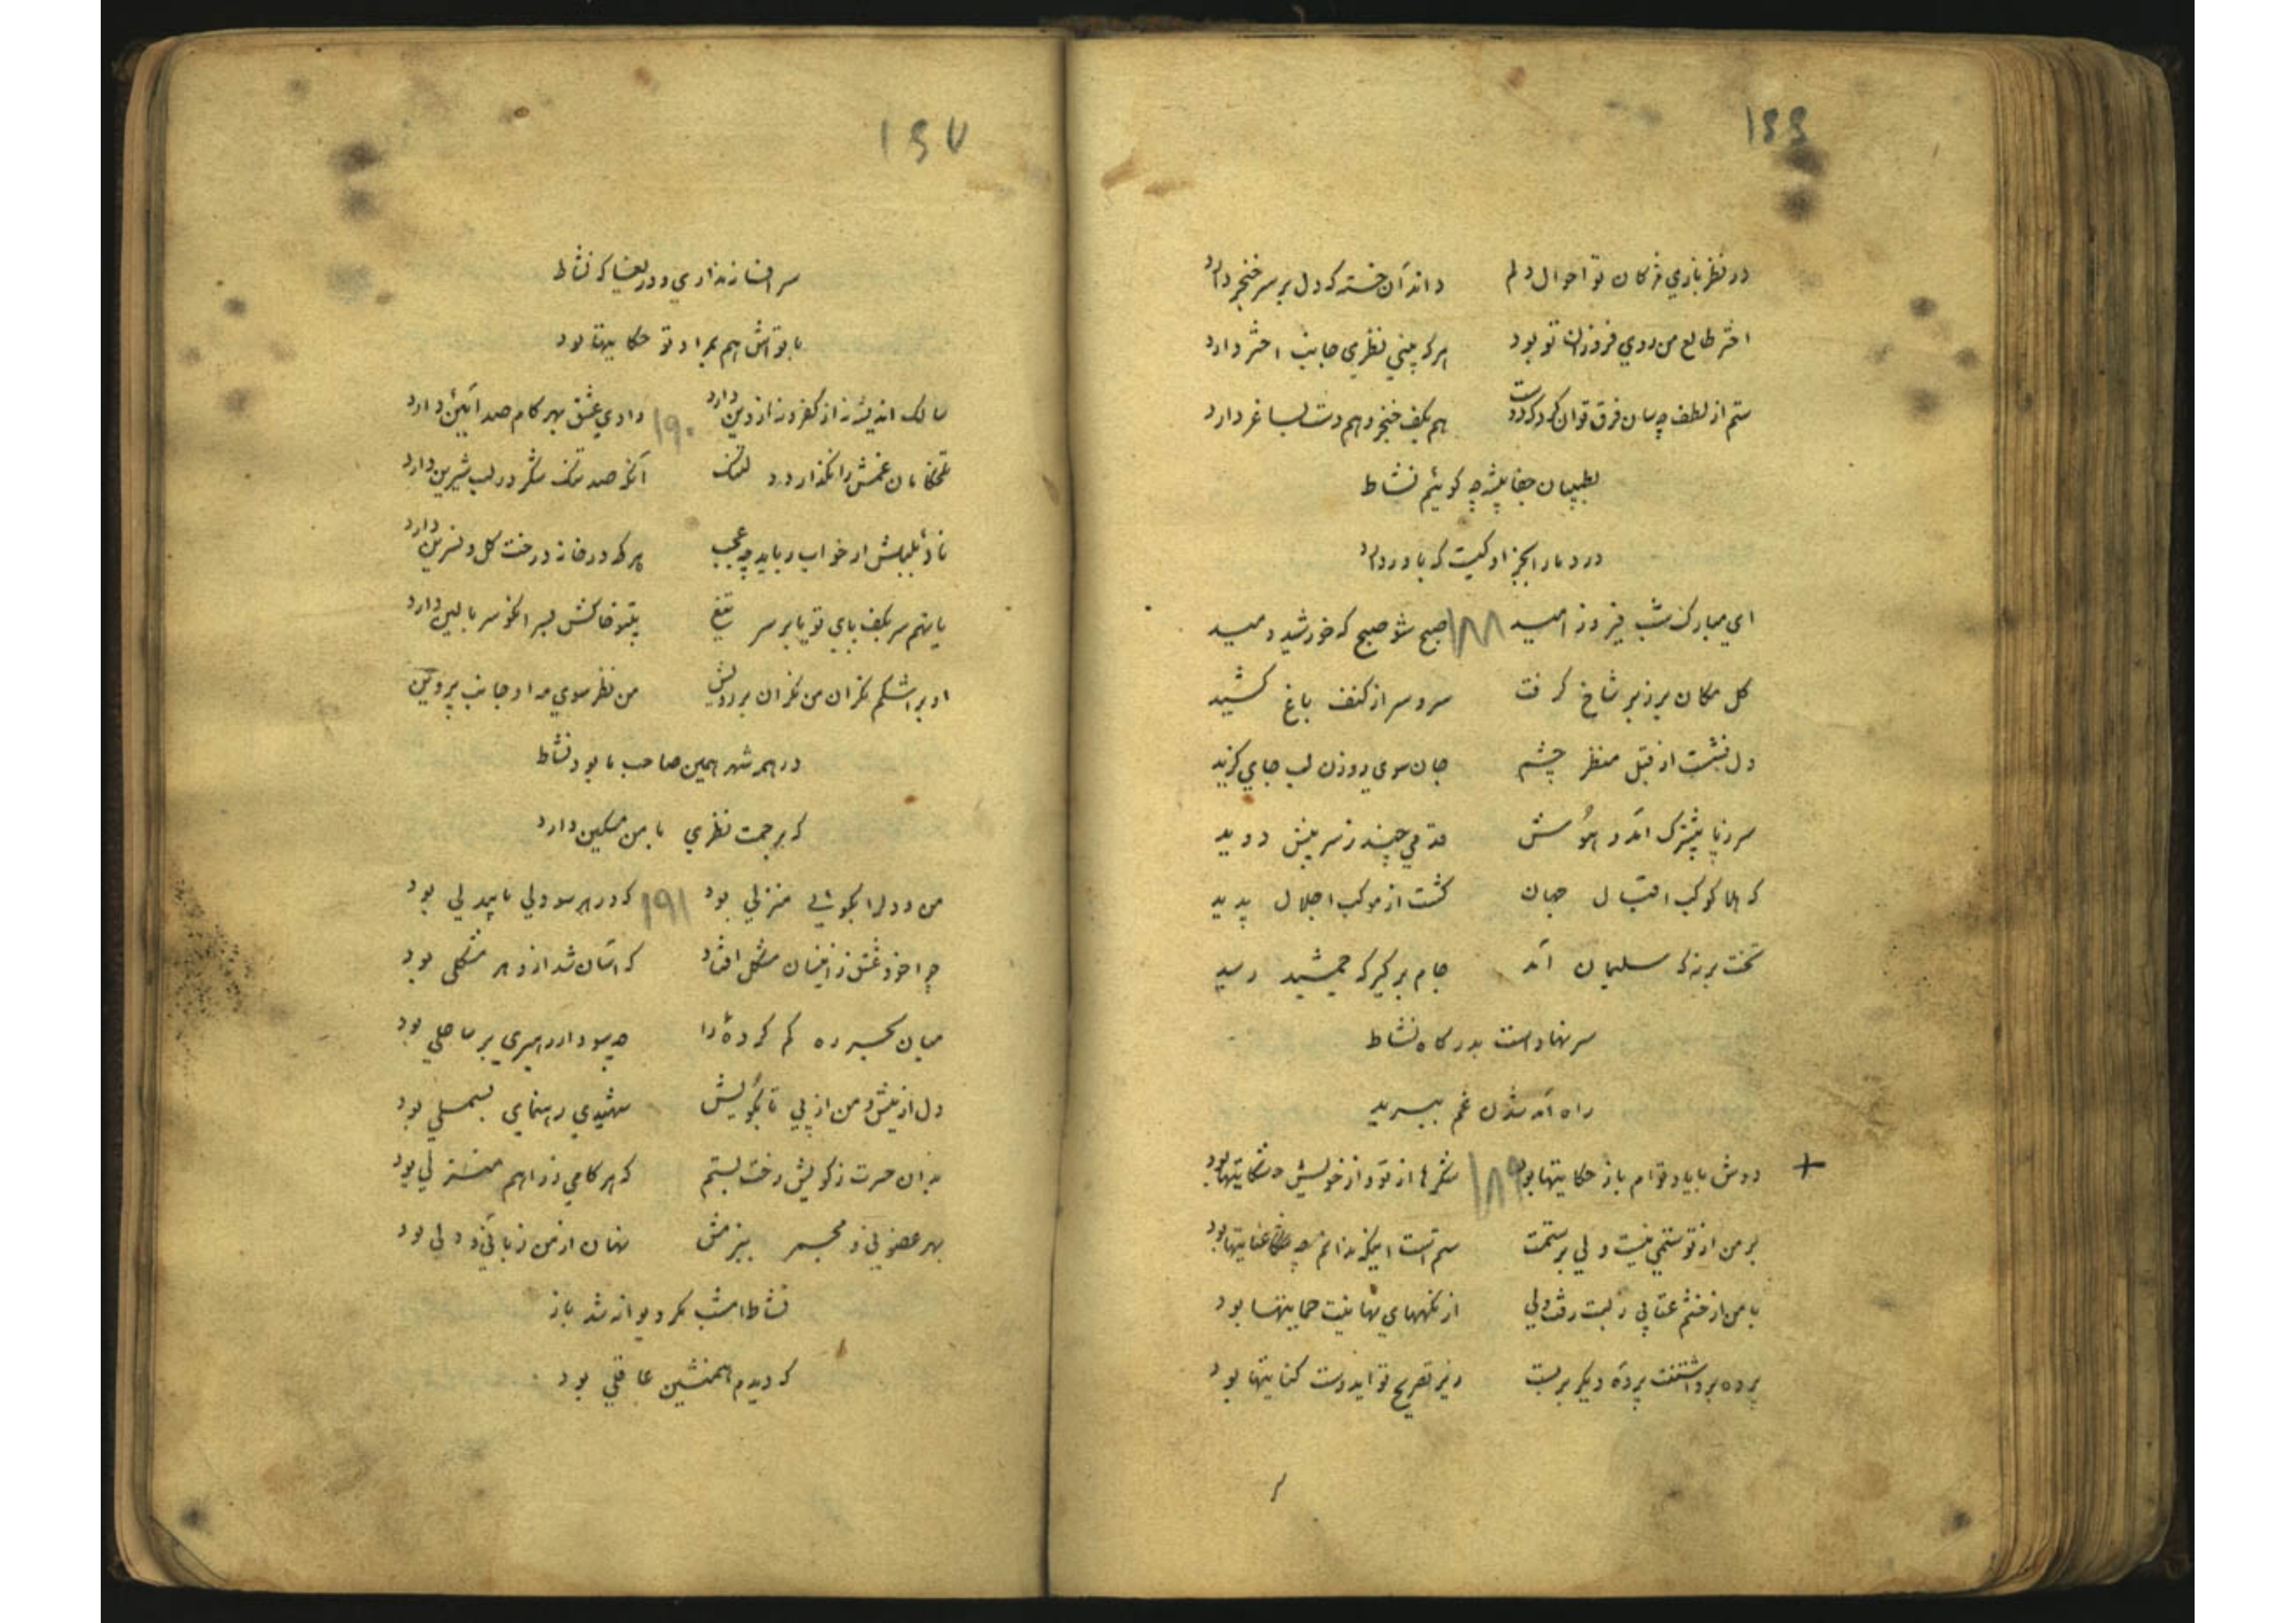 ۱۶۶
در نظر بازي مژکان تو احوال دلم داند آن خسته که دل بر سر خنجر دارد
اختر طالع من روي فروزان تو بود هر که بیني نظري جانب اختر دارد
ستم از لطف چسان فرق توان کرد که دوست هم بکف خنجر و هم دست بساغر دارد
بطبیبان جفا پیشه چه کوئیم نشاط
درد ما را بجز او کیست که باور دارد
اي مبارک شب فیروز امید ۱۸۸ صبح شو صبح که خورشید دمید
کل مکان بر زبر شاخ کرفت سرو سر از کنف باغ کشید
دل نشست از قبل منظر چشم جان سوي روزن لب جاي کزید
سر ز پا پیشترک آمد و هوش قدمي چند ز سر پیش دوید
که هلا کوکب اقبال جهان کشت از موکب اجلال پدید
تخت بر نه که سلیمان آمد جام بر کیر که جمشید رسید
سر نهاد است بدرکاه نشاط
راه آمد شدن غم ببرید
+ دوش با یاد توام باز حکایتها بود ۱۸۹ شکرها از تو و از خویش شکایتها بود
بر من از تو ستمي نیست ولي بر ستمت ستم است اینکه ندانم چه عنایتها بود
با من از خشم عتابي ز لبت رفت ولي از نکههاي نهانیت حمایتها بود
پرده برداشتنت پردهٔ دیکر بر بست زیر تصریح تو ایدوست کنایتها بود
۱۶۷
سر افسانه نداري و دریغا که نشاط
با تواش هم بمراد تو حکایتها بود
سالک اندیشه نه از کفر و نه از دین دارد ۱۹۰ وادي عشق بهر کام صد آئین دارد
تلخکامان غمش را نکذارد نمک آنکه صد تنک شکر در لب شیرین دارد
نالهٔ بلبلش از خواب رباید چه عجب هر که در خانه درخت کل و نسرین دارد
یا نهم سر بکف پاي تو یا بر سر تیغ
او بر اشکم نکران من نکران بر رویش من نظر سوي مه او جانب پروین
در همه شهر همین صاحب ما بود نشاط
که برحمت نظري با من مسکین دارد
من و دل را بکوئي منزلي بود ۱۹۱ که در هر سو دلي با بیدلي بود
چرا خود عشق ز ایشان مشکل افتاد که آسان شد ازو هر مشکلي بود
میان بحر ره کم کردهٔ را چه سود ار رهبري بر ساحلي بود
دل از پیش و من از پي تا بکویش شهیدي رهنماي بسملي بود
بدان حسرت ز کویش رخت بستم که هر کامي ز راهم منزلي بود
بهر عضوي ز مجمر نهان از من زباني و دلي بود
نشاط امشب مکر دیوانه شد باز
که دیدم همنشین عاقلي بود